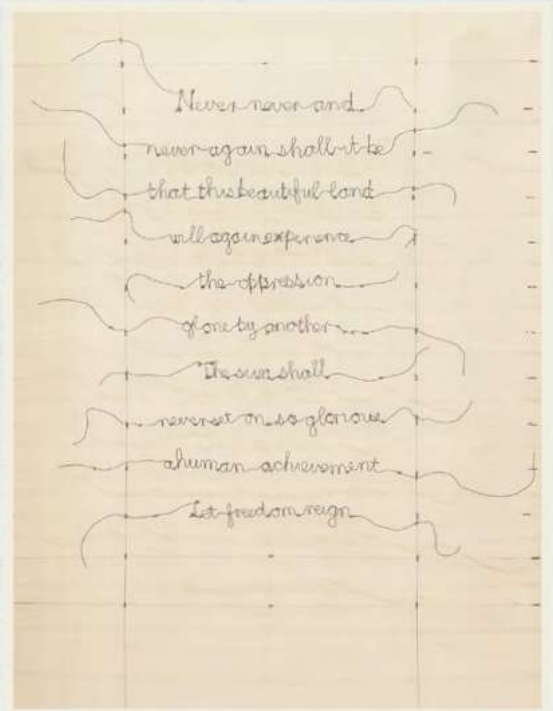 Never never and
never again shall it be
that this beautiful land
will again experience
the oppression
of one by another...
The sun shall
never set on so glorious
a human achievement
Let freedom reign